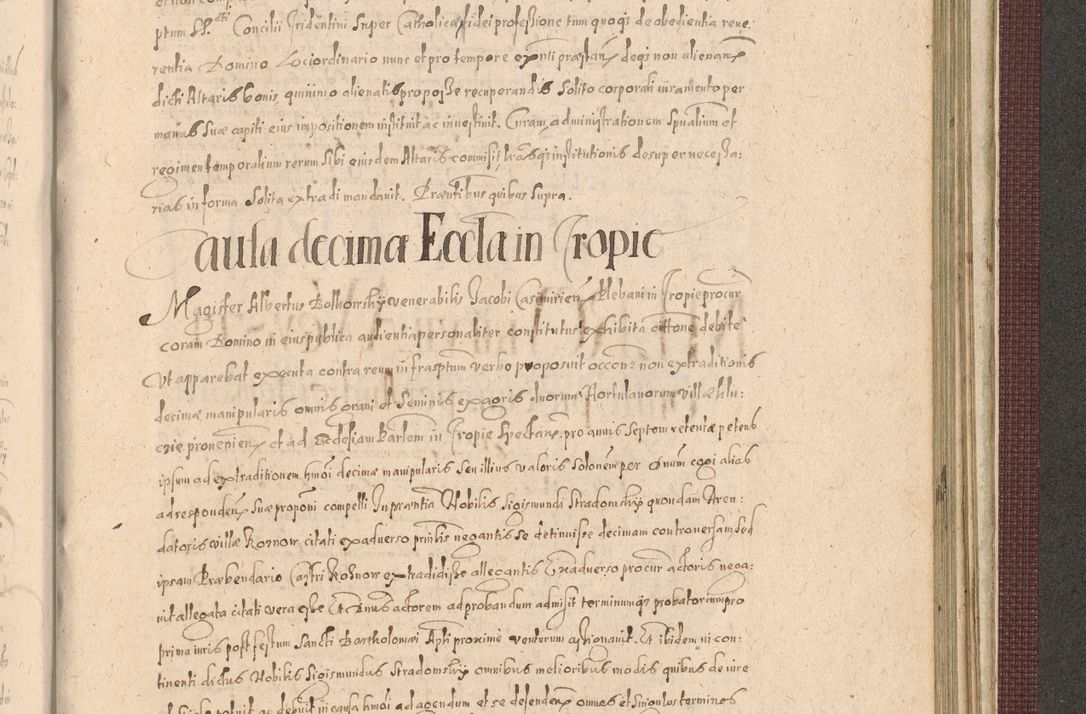 ptum SS. Concilii Tridentini super Catholica fidei professione tum quoqz de obedientia reve
rentia Domino Lociordinario nunc et pro tempore exnti præstan deqz non alienan
dicti Altaris bonis, quinimo alienatis pro posse recuperandis solito corporali iuramento per
manus suæ capiti eius impositionem instituit ac investivit. Curam, administrationem spualium et
regimen temporalium rerum sibi eiusdem Altaris commisit lrasqz institutionis desuper necessa:
rias in forma solita extradi mandavit. Præntibus quibus supra.
Causa decima Eccla in Tropie
Magister Albertus Bolhorsky venerabilis Jacobi Casimirien Plebani in Tropie procur
coram Domino in eius publica audientia personaliter constitutus exhibita cittone debite
ut apparebat executa contra reum infrasptum verbo proposuit occone non extraditionis
decimæ manipularis omnis grani et seminis ex agris duorum Hortulanorum villæ
provenien et ad Ecclesiam Parlem in Tropie spectan pro annis septem retentæ petens
ipsum ad extraditionem hmoi decimæ manipularis seu illius valoris solonem per Dnum cogi alias
ad responden suæ proponi compelli In præntia Nobilis Sigismundi Stradomsky quondam Aren:
datoris villæ Roznow citati ex adverso prinlis negantis se detinuisse decimam controversam sed
ipsam Præbendario Castri Roznow extradidisse allegantis Ex adverso procur actoris nega:
vit allegata citati vera esse Et Dnus actorem ad probandum admisit terminumqz probatorium pro
prima iuris post festum Sancti Bartholomæi Apli proxime venturum assignavit. Et ibidem in con:
tinenti dictus Nobilis Sigismundus Stradomsky omnibus melioribus modis quibus de iure
potuit ac debuit in causa hmoi ad agendum et se defenden omnes et singulos terminos